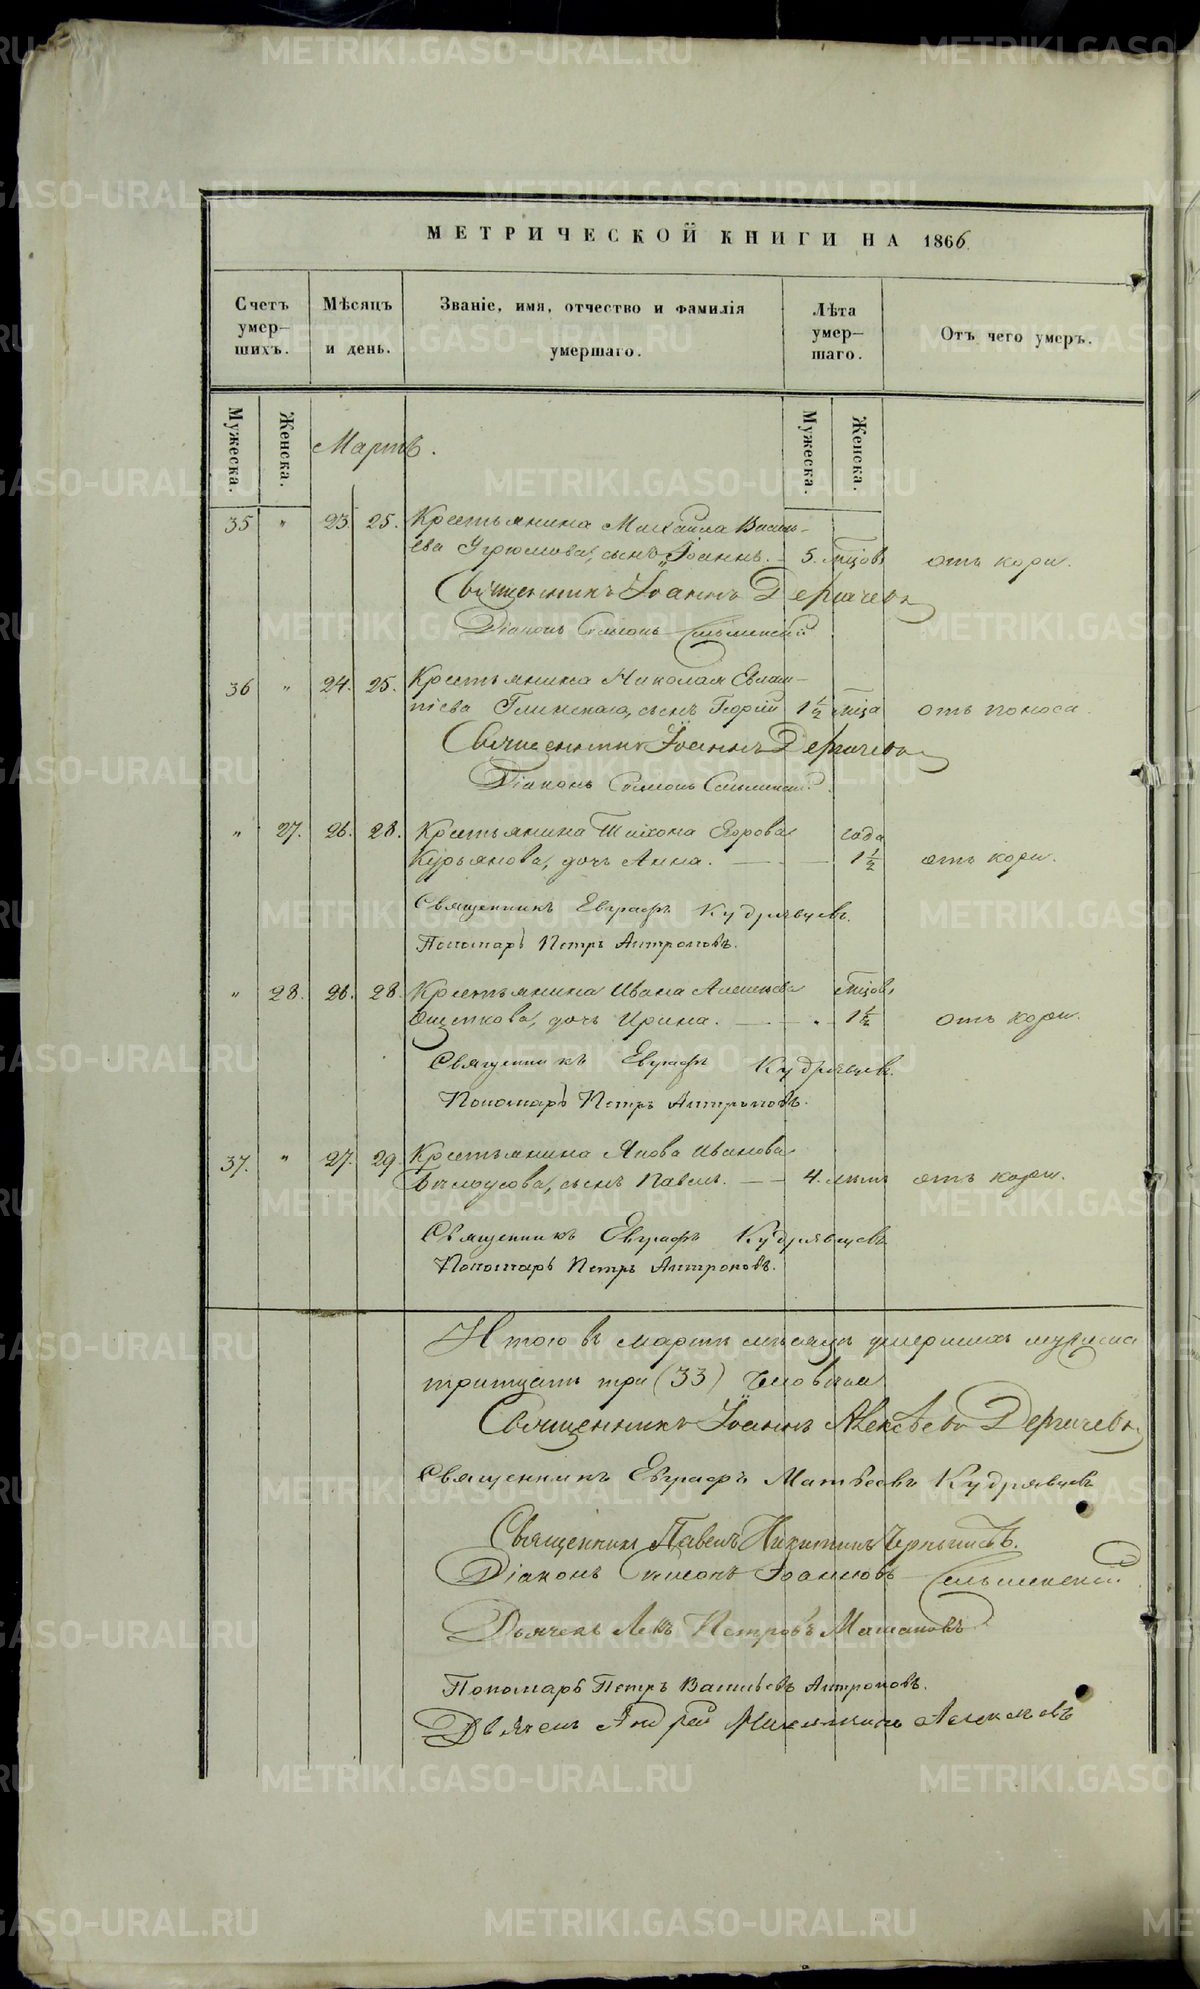 МЕТРИЧЕСКОЙ КНИГИ НА 1866
Счетъ умер-
шихъ.
Мѣсяцъ
и день.
Званіе, имя, отчество и фамилія
умершаго.
Лѣта
умер-
шаго.
Отъ чего умеръ.
Мужеска.
Женска.
Мужеска.
Женска.
Мартъ.
35 " 23. 25. Крестьянина Михаила Василь-
ева Угрюмова, сынъ Іоаннъ. 5. мѣсцовъ отъ кори.
Священникъ Іоаннъ Дергачевъ
Діаконъ Симеонъ
36 " 24. 25. Крестьянина Николая Евлам-
піева Глинскаго, сынъ Георгій 1 1/2 мѣсца отъ поноса
Священникъ Іоаннъ Дергачевъ
Діаконъ Симеонъ
" 27. 26. 28. Крестьянина Тихона Егорова года
Курьянова, дочь Анна. 1 1/2 отъ кори.
Священникъ Евграфъ Кудрявцевъ.
Пономарь Петръ Антроповъ.
" 28. 26. 28. Крестьянина Ивана Алексѣева мѣсцовъ
Ощепкова, дочь Ирина. " отъ кори.
Священникъ Евграфъ Кудрявцевъ.
Пономарь Петръ Антроповъ.
37. " 27. 29. Крестьянина Якова Иванова
Бѣлоусова, сынъ Павелъ. 4. лѣтъ отъ кори.
Священникъ Евграфъ Кудрявцевъ
Пономарь Петръ Антроповъ.
Итого въ мартѣ мѣсяцѣ умершихъ мужеска
тритцать три (33) человѣка
Священникъ Іоаннъ Алексѣевъ Дергачевъ
Священникъ Евграфъ Матвѣевъ Кудрявцевъ
Священникъ Павелъ Никитинъ
Діаконъ Симеонъ Іоанновъ
Дьячекъ Петровъ
Пономарь Петръ Васильевъ Антроповъ.
Дьячекъ Андрей Алексѣевъ
METRIKI.GASO-URAL.RU